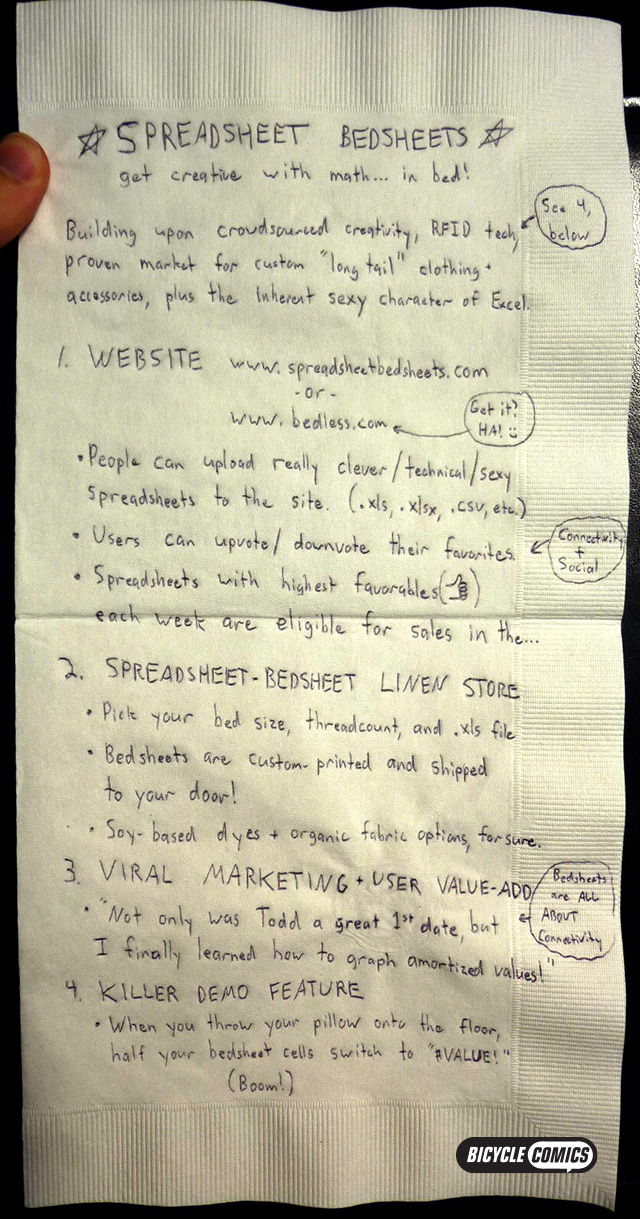 ☆ SPREADSHEET BEDSHEETS ☆
get creative with math... in bed!
See 4,
below
Building upon crowdsourced creativity, RFID tech,
proven market for custom "long tail" clothing +
accessories, plus the inherent sexy character of Excel.
1. WEBSITE www.spreadsheetbedsheets.com
-or-
www.bedless.com
Get it?
HA! :)
• People can upload really clever/technical/sexy
spreadsheets to the site. (.xls, .xlsx, .csv, etc.)
• Users can upvote/downvote their favorites.
Connectivity
+
Social
• Spreadsheets with highest favorables (👍)
each week are eligible for sales in the...
2. SPREADSHEET-BEDSHEET LINEN STORE
• Pick your bed size, threadcount, and .xls file
• Bedsheets are custom-printed and shipped
to your door!
• Soy-based dyes + organic fabric options, for sure.
3. VIRAL MARKETING + USER VALUE-ADD
Bedsheets
are ALL
ABOUT
Connectivity
• "Not only was Todd a great 1st date, but
I finally learned how to graph amortized values!"
4. KILLER DEMO FEATURE
• When you throw your pillow onto the floor,
half your bedsheet cells switch to "#VALUE!"
(Boom!)
BICYCLE COMICS